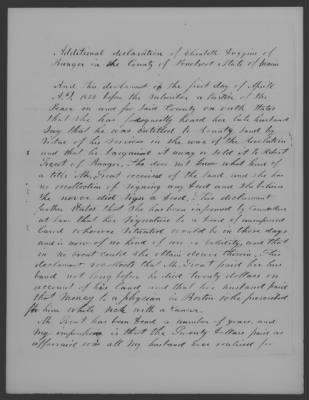 Additional declaration of Elizabeth Scoggins of
Bangor in the County of Penobscot State of Maine
And this declarant on the first day of April
A.D. 1850 before the subscriber a Justice of the
Peace in and for said County on oath states
that she has frequently heard her late husband
say that he was entitled to bounty land by
Virtue of his services in the war of the Revolution
and that he bargained it away or sold it to Robert
Treat of Bangor. She does not know what kind of
a title Mr. Treat received of the land, and she has
no recollection of signing any deed and she believes
she never did sign a deed. This declarant
further states that she has been informed by counsellors
at law that her signature to a deed of unimproved
land wherever situated would be in those days
and is now of no kind of use or validity, and that
in no event could she obtain dower therein. This
declarant further saith that Mr. Treat paid her hus
band not long before he died twenty dollars on
account of his land and that her husband paid
that money to a physician in Boston who prescribed
for him while sick with a cancer.
Mr. Treat has been dead a number of years, and
my impression is that the Twenty dollars paid as
afforesaid was all my husband ever received for